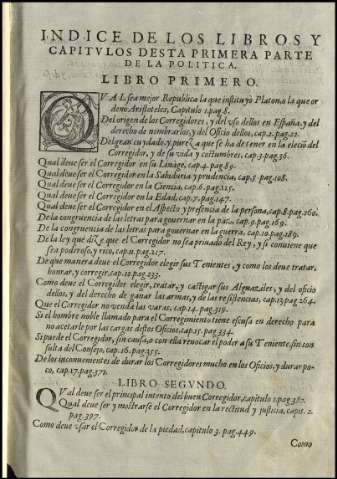 INDICE DE LOS LIBROS Y
CAPITVLOS DESTA PRIMERA PARTE
DE LA POLITICA.
LIBRO PRIMERO.
QVAL sea mejor Republica la que instituyó Platon, a la que or
denò Aristoteles, Capitulo 1. pag. 8.
Del origen de los Corregidores, y del vso dellos en España, y del
derecho de nombrarlos, y del Oficio dellos, cap. 2. pag. 21.
Del gran cuydado, y pureza que se ha de tener en la elecciõ del
Corregidor, y de su vida y costumbres, cap. 3. pag. 36.
Qual deue ser el Corregidor en su Linage, cap. 4. pag. 89.
Qual deue ser el Corregidor en la Sabiduria y prudencia, cap. 5. pag. 108.
Qual deue ser el Corregidor en la Ciencia, cap. 6. pag. 125.
Qual deue ser el Corregidor en la Edad, cap. 7. pag. 147.
Qual deue ser el Corregidor en el Aspecto y presencia de la persona, cap. 8. pag. 160.
De la congruencia de las letras para gouernar en la paz, cap. 9. pag. 169.
De la congruencia de las letras para gouernar en la guerra, cap. 10. pag. 189.
De la ley que dize que el Corregidor no sea priuado del Rey, y si conuiene que
sea poderoso, y rico, cap. 11. pag. 217.
De que manera deue el Corregidor elegir sus Tenientes, y como los deue tratar,
honrar, y corregir, cap. 12. pag. 233.
Como deue el Corregidor elegir, tratar, y castigar sus Alguaziles, y del oficio
dellos, y del derecho de ganar las armas, y de las resistencias, cap. 13. pag. 264.
Que el Corregidor no venda las varas, cap. 14. pag. 319.
Si el hombre noble llamado para el Corregimiento tiene escusa en derecho para
no acetarle por las cargas destos Oficios, cap. 15. pag. 334.
Si puede el Corregidor, sin causa, o con ella reuocar el poder a su Teniente, sin con
sulta del Consejo, cap. 16. pag. 355.
De los inconuenientes de durar los Corregidores mucho en los Oficios, y durar po-
co, cap. 17. pag. 372.
LIBRO SEGVNDO.
QVal deue ser el principal intento del buen Corregidor, capitulo 1. pag. 387.
Qual deue ser y mostrarse el Corregidor en la rectitud y justicia, cap. 2.
pag. 397.
Como deue vsar el Corregidor de la piedad, capitulo 3. pag. 449.
Como